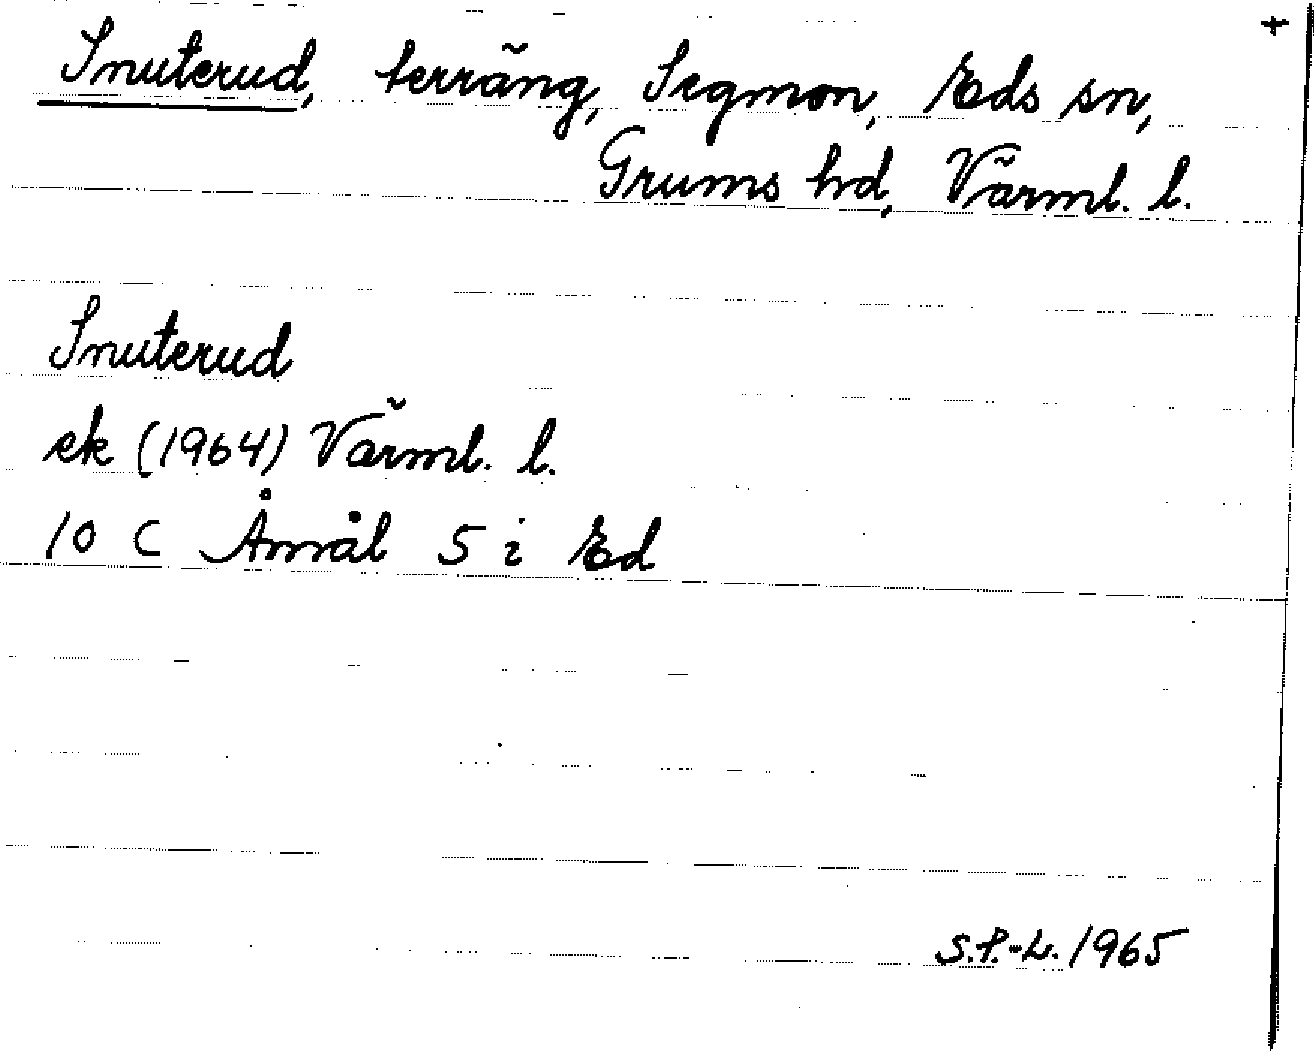 +
Snuterud, terräng, Segmon, Eds sn,
Grums hd, Värml. l.
Snuterud
ek (1964) Värml. l.
10 C Åmål 5 i Ed
S.P.-L. 1965